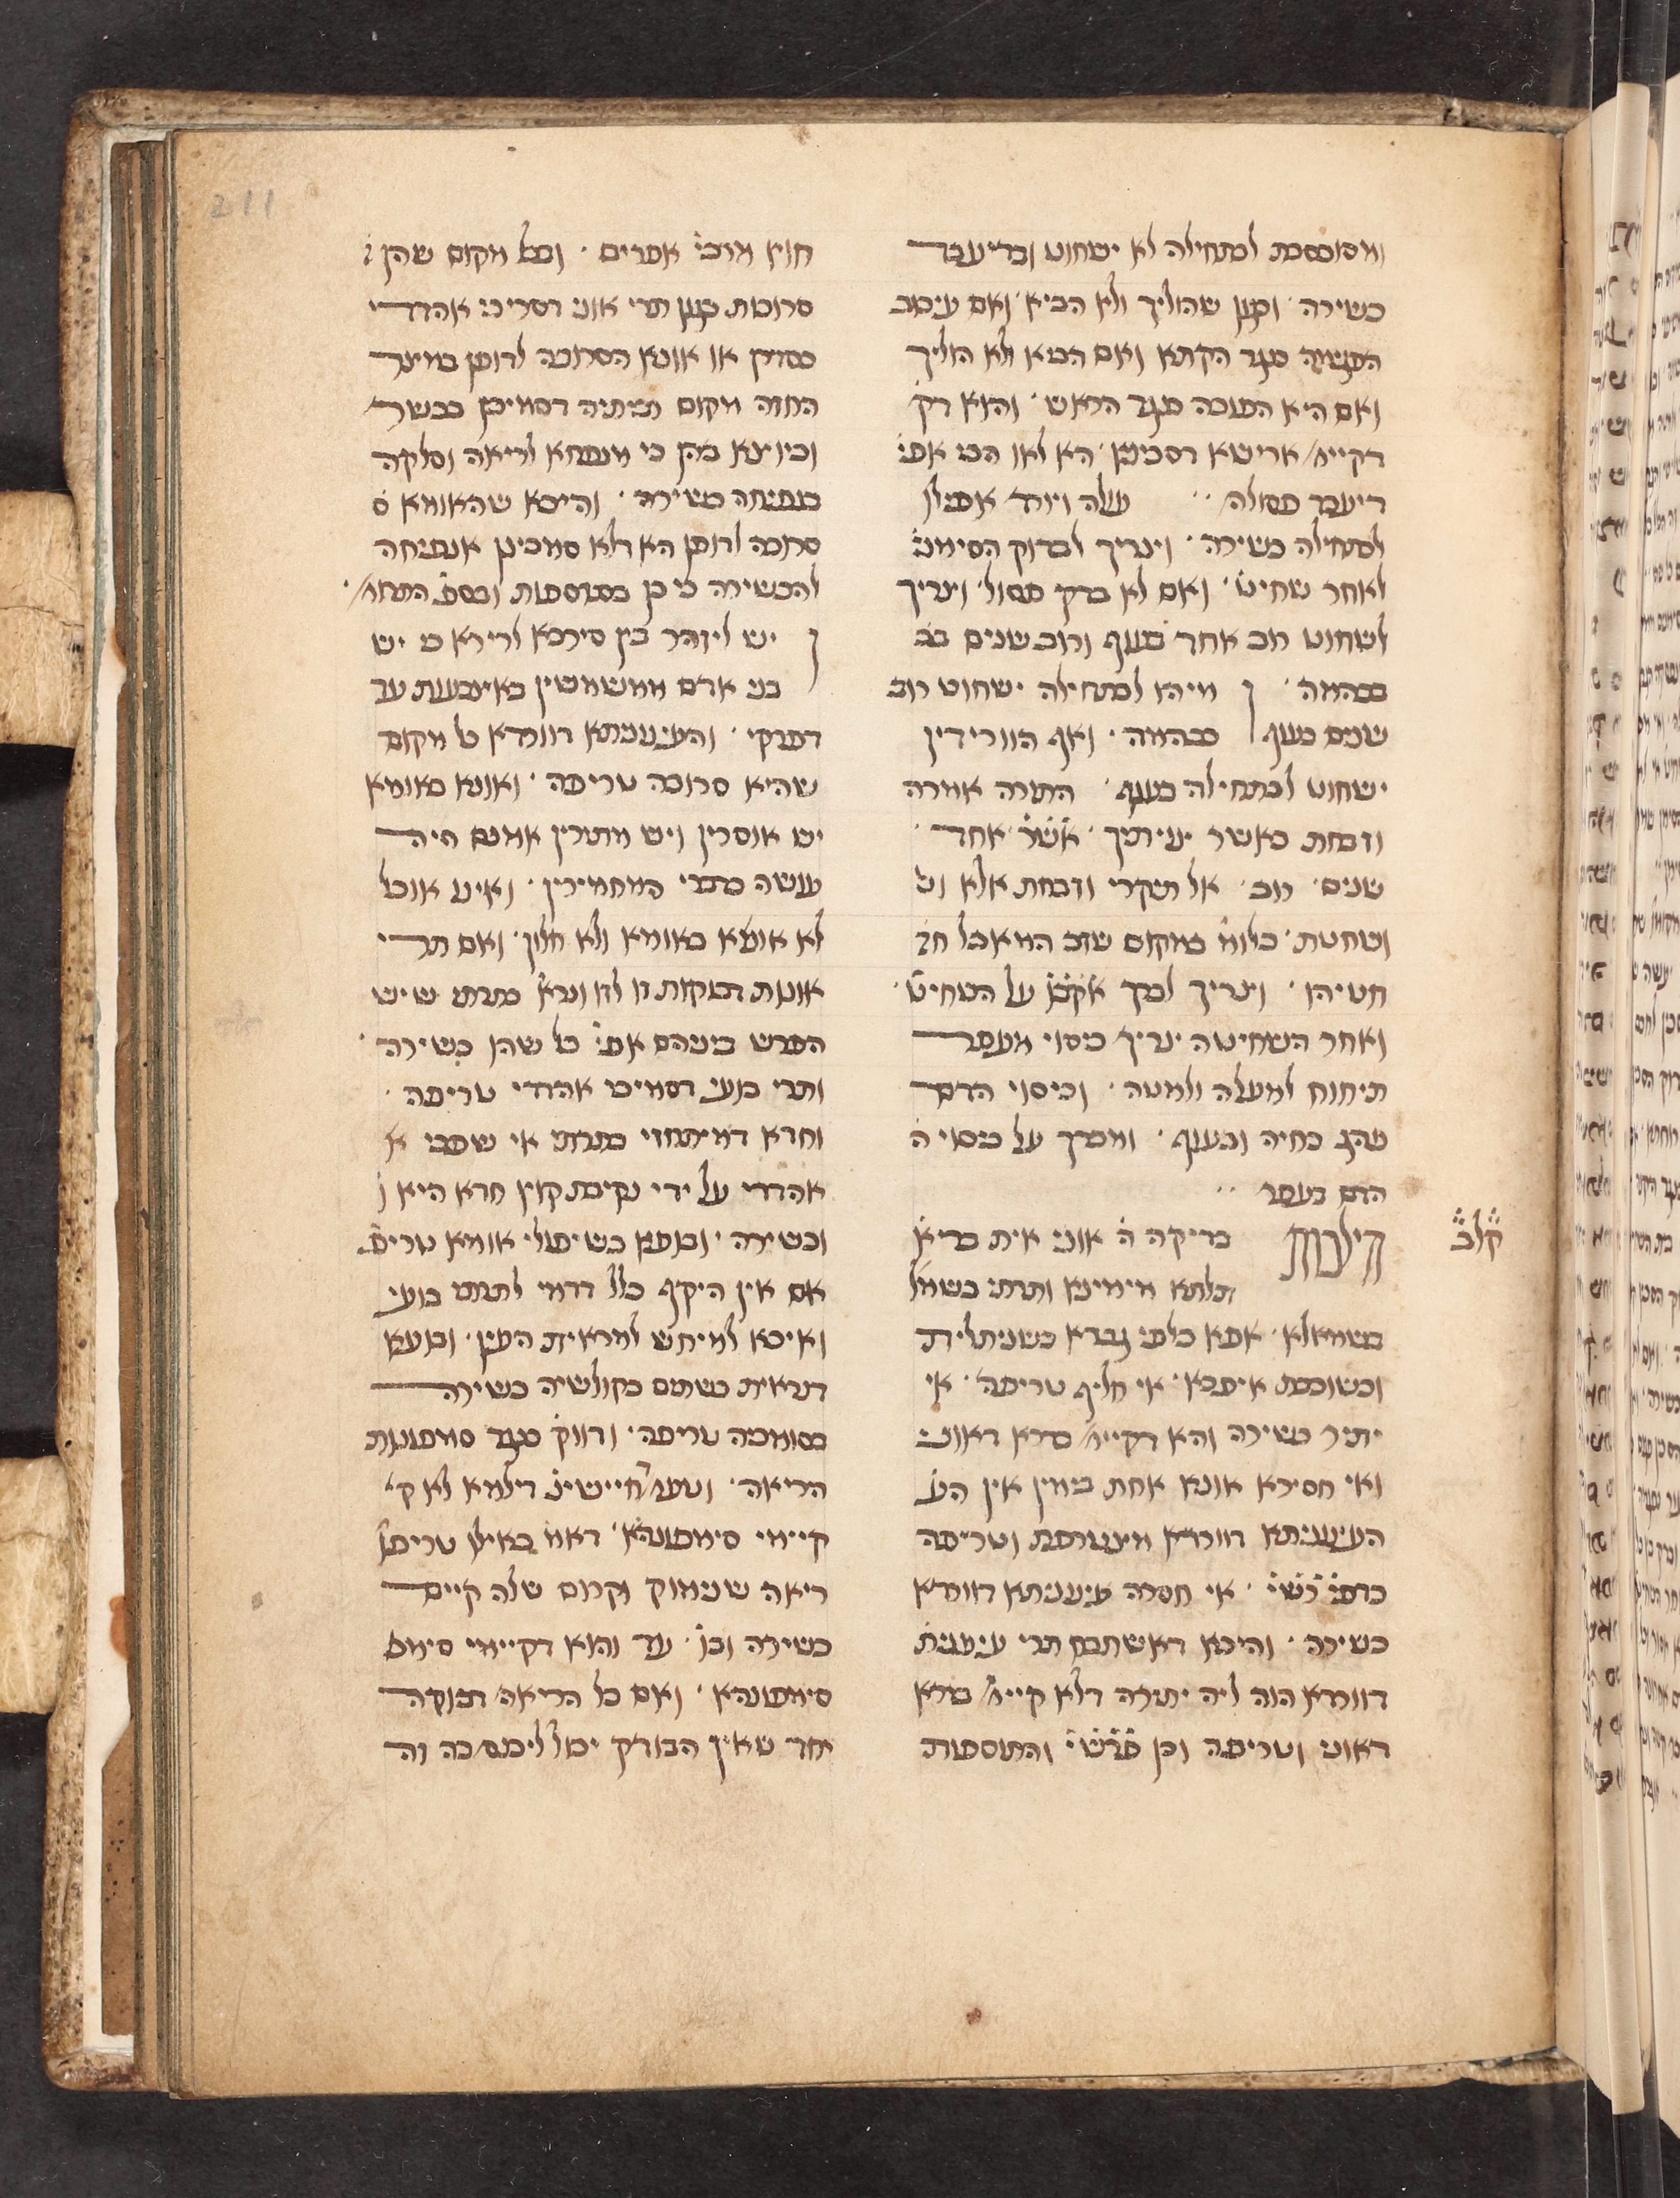 ומסוכסכת לכתחילה לא ישחוט ובדיעבד
כשירה ׳ וכגון שהוליך ולא הביא ׳ ואם עיכוב
העקומה כנגד הקתא ואם הביא ולא הוליך
ואם היא הפוכה כנגד הראש ׳ והוא דק׳
דקיימ׳ ארישא דסכינ׳ ׳ הא לאו הכי אפי׳
דיעבד פסולה ׳׳ עולה ויורד אפילו
לכתחילה כשירה ׳ וצריך לבדוק הסימני׳
לאחר שחיט׳ ׳ ואם לא בדק פסול ׳ וצריך
לשחוט רוב אחד בעוף ורוב שנים בב
בבהמה ׳ מיהו לכתחילה ישחוט רוב
שנים בעוף בבהמה ׳ ואף הוורידין
ישחוט לכתחילה בעוף ׳ התורה אמרה
וזבחת כאשר צויתיך ׳ אשר ׳ אחד ׳
שנים ׳ רוב ׳ אל תקרי וזבחת אלא וט׳
ושחטת ׳ כלומ׳ ממקום שזב המאכל חט׳
חטיהו ׳ וצריך לברך אקב״ו על השחיט׳ ׳
ואחר השחיטה צריך כיסוי מעפר
תיחוח למעלה ולמטה ׳ וכיסוי הדם
נוהג בחיה ובעוף ׳ ומברך על כיסוי ה׳
הדם בעפר ׳׳
קל״ב
הילכות בדיקה ה׳ אוני אית בריא׳
תלתא מימינא ותרתי בשמאל
בשמאלא ׳ אפא כלפי גברא כשניתלית
וכשוכבת איפכא ׳ אי חליף טריפה ׳ אי
יתיר כשירה והא דקיימ׳ בדרא דאוני
ואי חסירא אונא אחת בימין אין הע׳
העינוניתא דוורדא מצטרפת וטריפה
כדפי׳ רש״י ׳ אי חסרה עינוניתא דוורדא
כשירה ׳ והיכא דאשתכח תרי עינוני׳
דוורדא הוה ליה יתירה דלא קיימ׳ בדרא
דאוני וטריפה וכן פר״שי והתוספות
חוץ מרבי׳ אפרים ׳ ובכל מקום שהן ׳
סרוכות כגון תרי אוני דסריכי אהדדי
כסדרן או אונא הסרוכה לדופן במיצר
החזה מקום תניתיה דסמיכן בבשר
וכיוצא בהן כי מנפחא לריאה וסלקה
בנפיחה כשירה ׳ והיכא שהאומא ס
סרוכה לדופן הא דלא סמכינן אנפיחה
להכשירה כי כן בתוספות ובספ׳ התרומ׳ ׳
יש ליזהר בין סירכא לרירא כי יש
בני אדם ממשמשין באיצבעות עד
דפרקי ׳ והעינוניתא דוורדא כל מקום
שהיא סרוכה טריפה ׳ ואונא באומא
יש אוסרין ויש מתירין אמנם היה
עושה כדברי המחמירין ׳ ואינו אוכל
לא אונא באומא ולא חלון ׳ ואם תרי
אונות דבוקות זו לזו ונרא׳ כתרתי שיש
הפרש ביניהם אפי׳ כל שהן כשירה ׳
ותרי בועי דסמיכי אהדדי טריפה ׳
וחדא דמיתחזי כתרתי אי שפכי א
אהדדי על ידי נקיבת קוץ חדא היא ו׳
וכשירה ׳ ובועא בשיפולי אומא טריפ׳
אם אין היקף כלל דדמי לתרתי בועי
ואיכא למיחש למראית העין ׳ ובועא
דמראית כשהם בקולשיה כשירה
בסומכה טריפה ׳ ודווק׳ כנגד סמפונות
הריאה ׳ וטעמ׳ חיישינ׳ דילמא לא קי׳
קיימי סימפונהא ׳ דאמ׳ באילו טריפו׳
ריאה שנימוק וקרום שלה קיים
כשירה וכו׳ ׳ עד והוא דקיימי סימפ
סימפונהא ׳ ואם כל הריאה דבוקה
יחד שאין הבודק יכול ליכנס בה וה